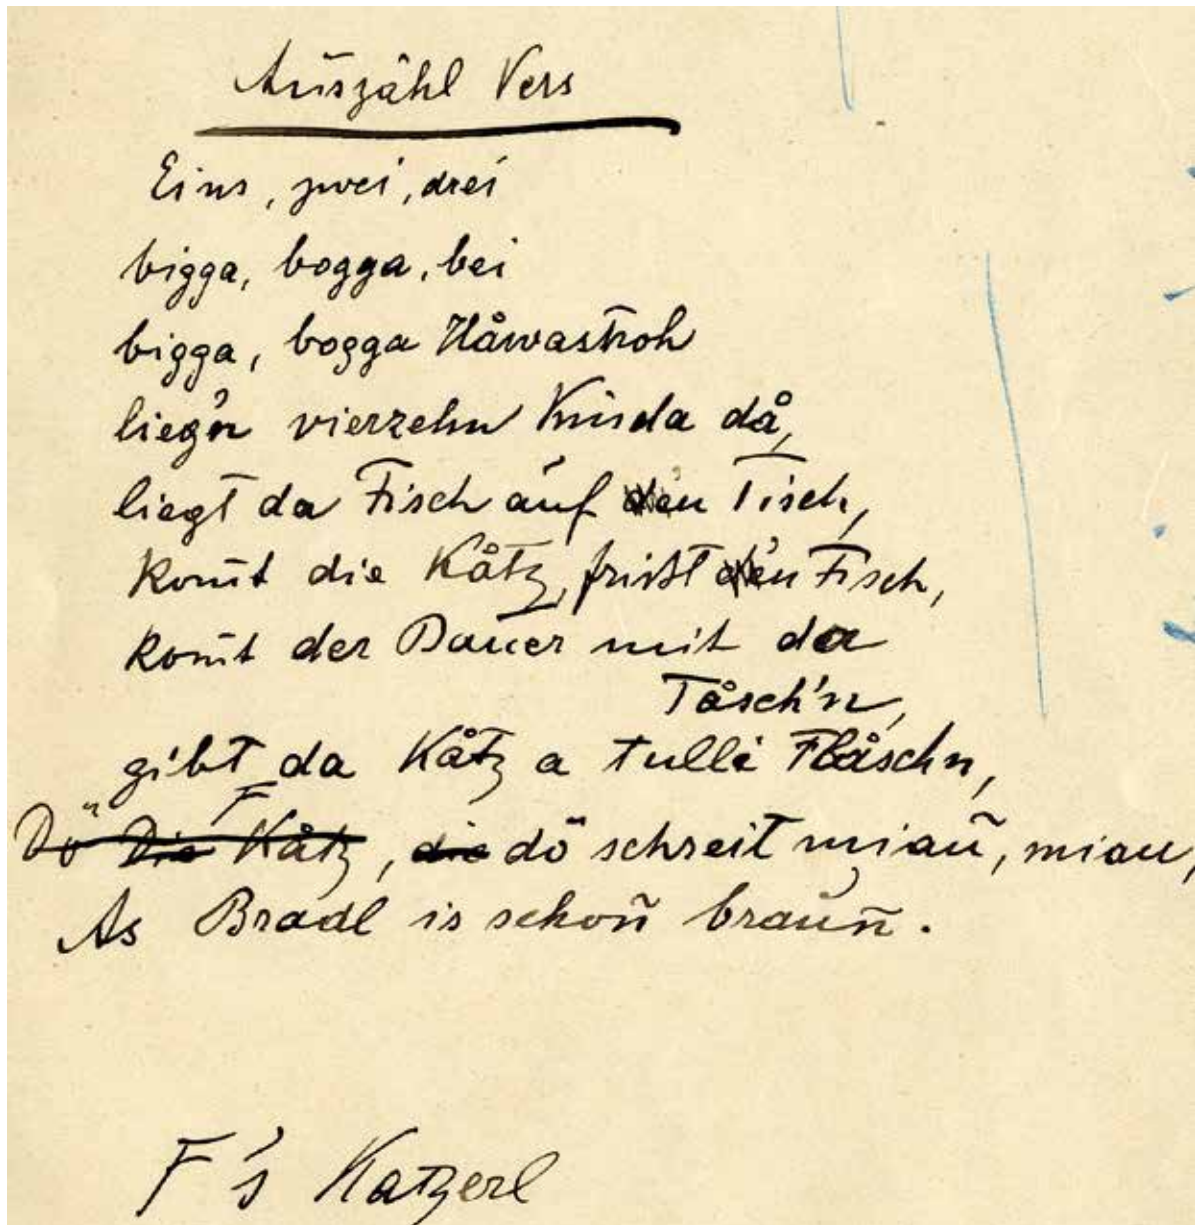 Auszähl Vers
Eins, zwei, drei
bigga, bogga, bei
bigga, bogga Håwastroh
lieg'n vierzehn Kinda då,
liegt da Fisch auf den Tisch,
kom̄t die Kåtz, frißt den Fisch,
kom̄t der Bauer mit da
Tåsch'n,
gibt da Kåtz a tulli Flåschn,
F
Dö Die Kåtz, die dö schreit miau, miau,
As Bradl is schon̄ braun̄.
F 's Katzerl